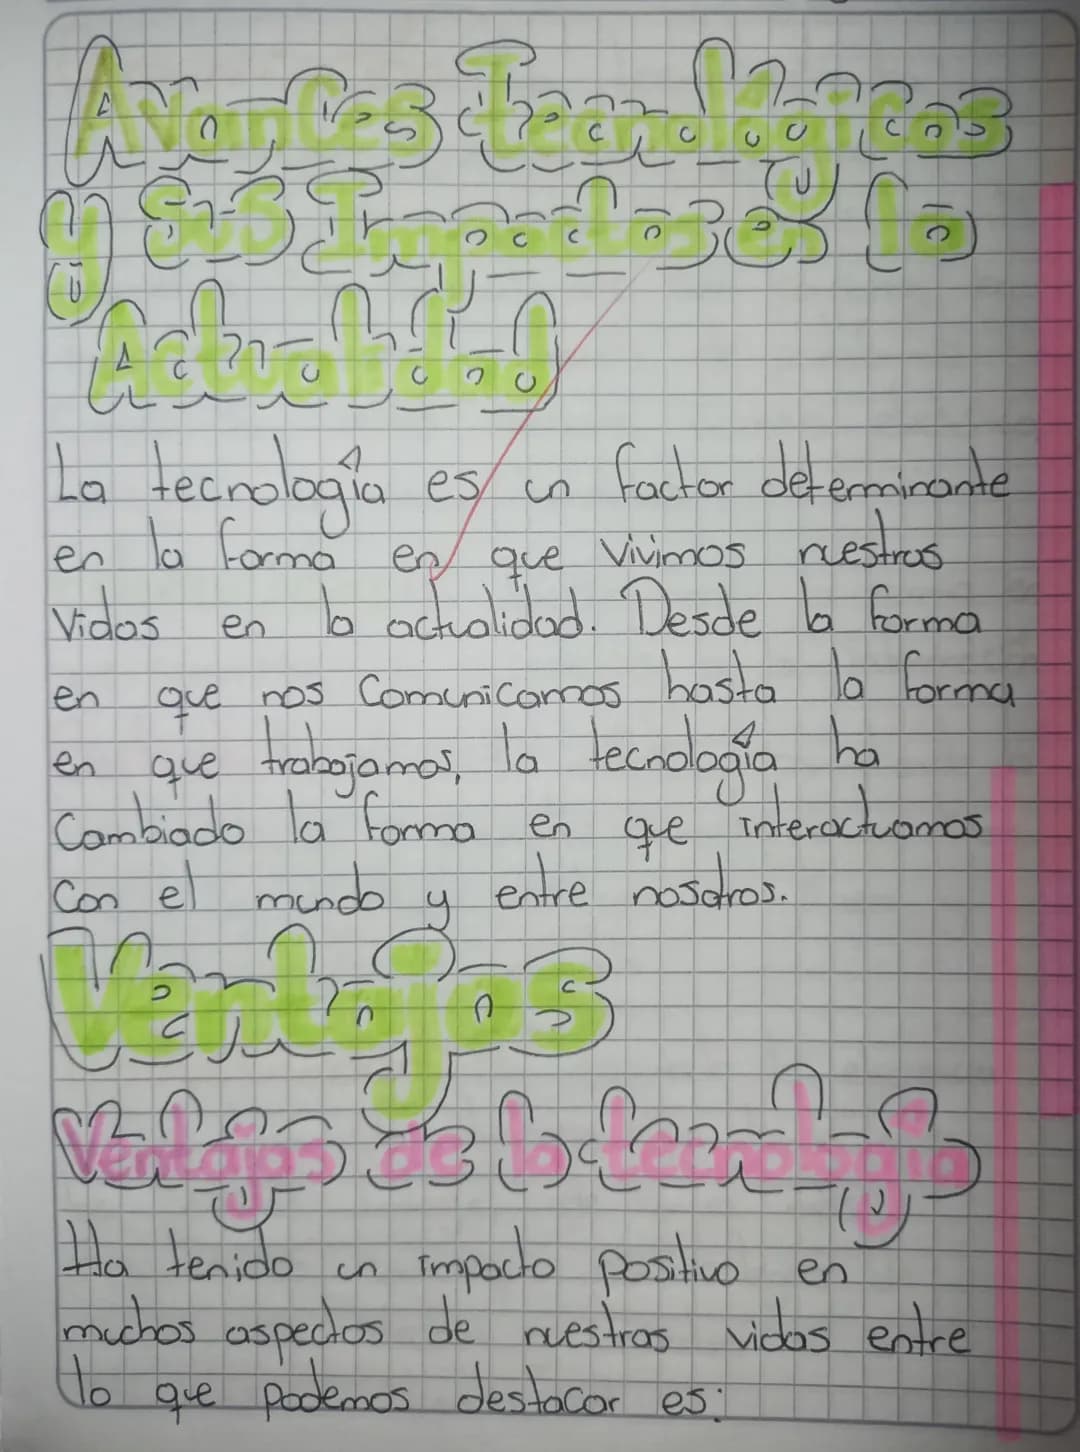 Avances Tecnológicos
y Sus Impactos en la
Actualidad
La tecnología es un factor determinante
en la forma en que vivimos nuestras
vidas en la actualidad. Desde la forma
en que nos Comunicamos hasta la forma
en que trabajamos, la tecnología ha
Cambiado la forma en que interactuamos
Con el mundo y entre nosotros.
Ventajas
Ventajas de la tecnología
Ha tenido un impacto positivo en
muchos aspectos de nuestras vidas entre
lo que podemos destacar es: